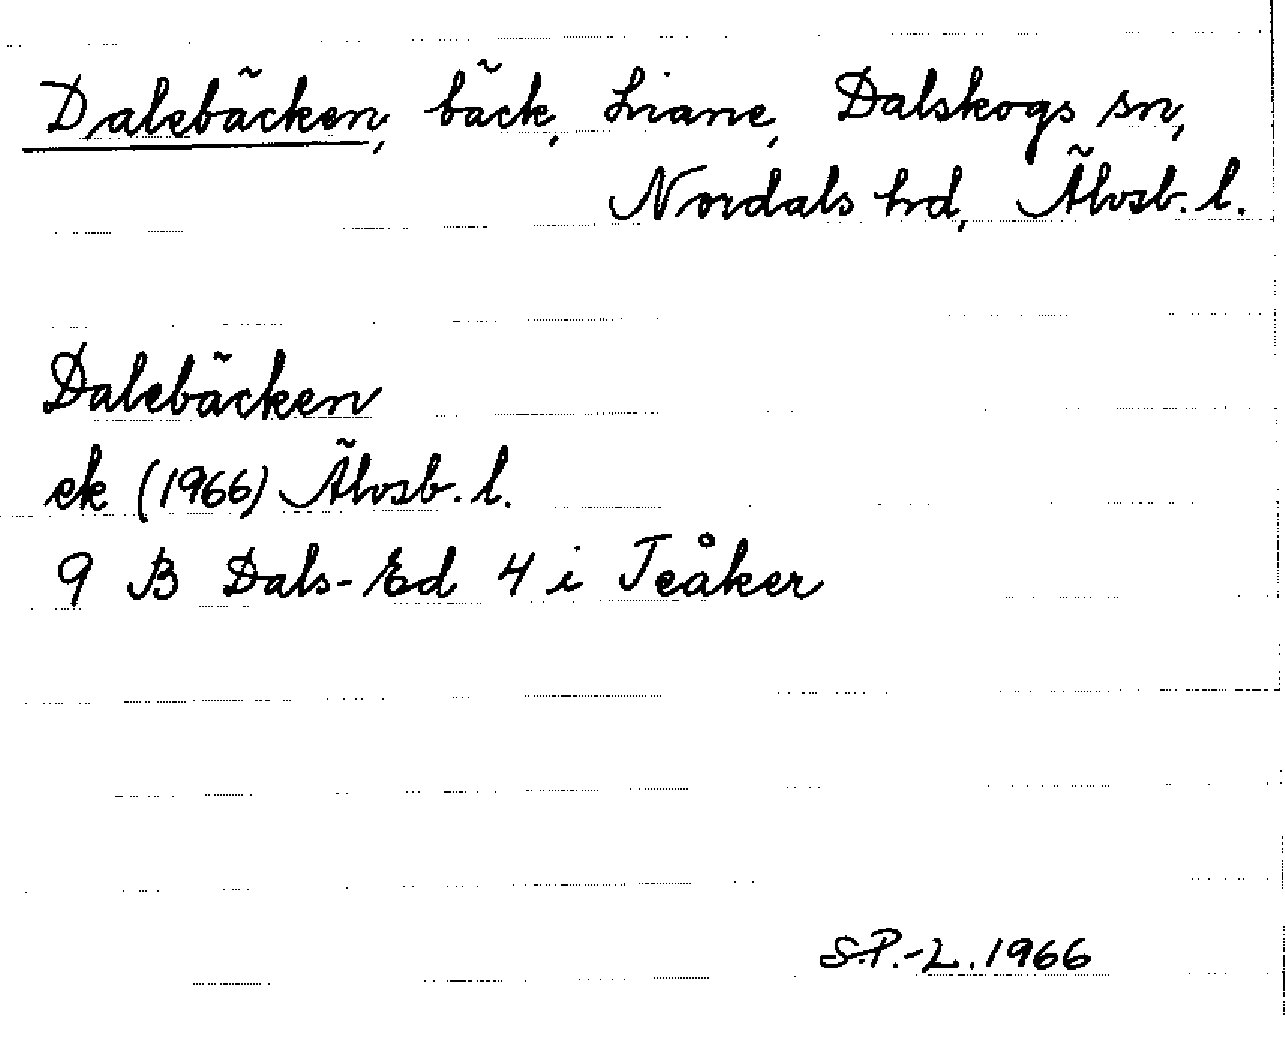 Dalebäcken, bäck, Liane, Dalskogs sn,
Nordals hd, Älvsb. l.
Dalebäcken
ek (1966) Älvsb. l.
9 B Dals-Ed 4 i Teåker
S.P.-L. 1966